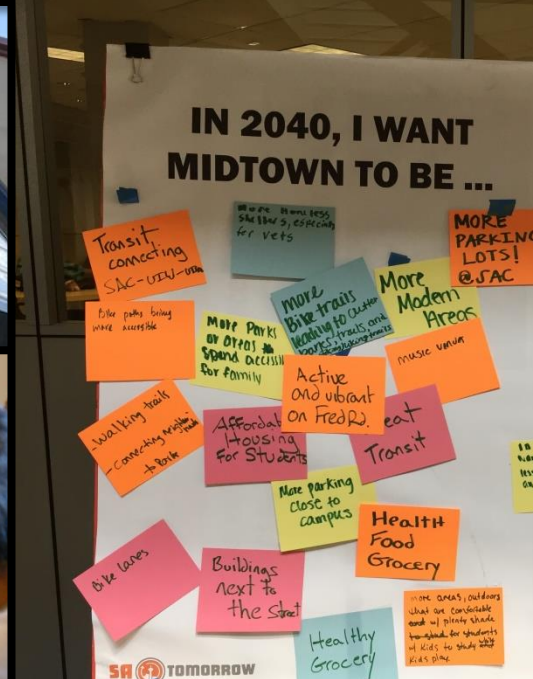 IN 2040, I WANT
MIDTOWN TO BE ...
Transit
connecting
SAC-UIW-
More Homless
Shelters, especially
for vets
MORE
PARKING
LOTS!
@SAC
Bike paths being
more accessible
More Parks
or areas to
spend
for family
More
Bike trails
leading to
parks, trails, and
More
Modern
Areas
music venue
Active
and vibrant
on Fred Rd.
-walking trails
-connecting
to
Affordab
Housing
For Students
eat
Transit
More parking
close to
campus
Health
Food
Grocery
Bike lanes
Buildings
next to
the Street
Healthy
Grocery
more areas, outdoors
what are comfortable
w/ plenty shade
for students
w/ kids to study
kids play
SA TOMORROW